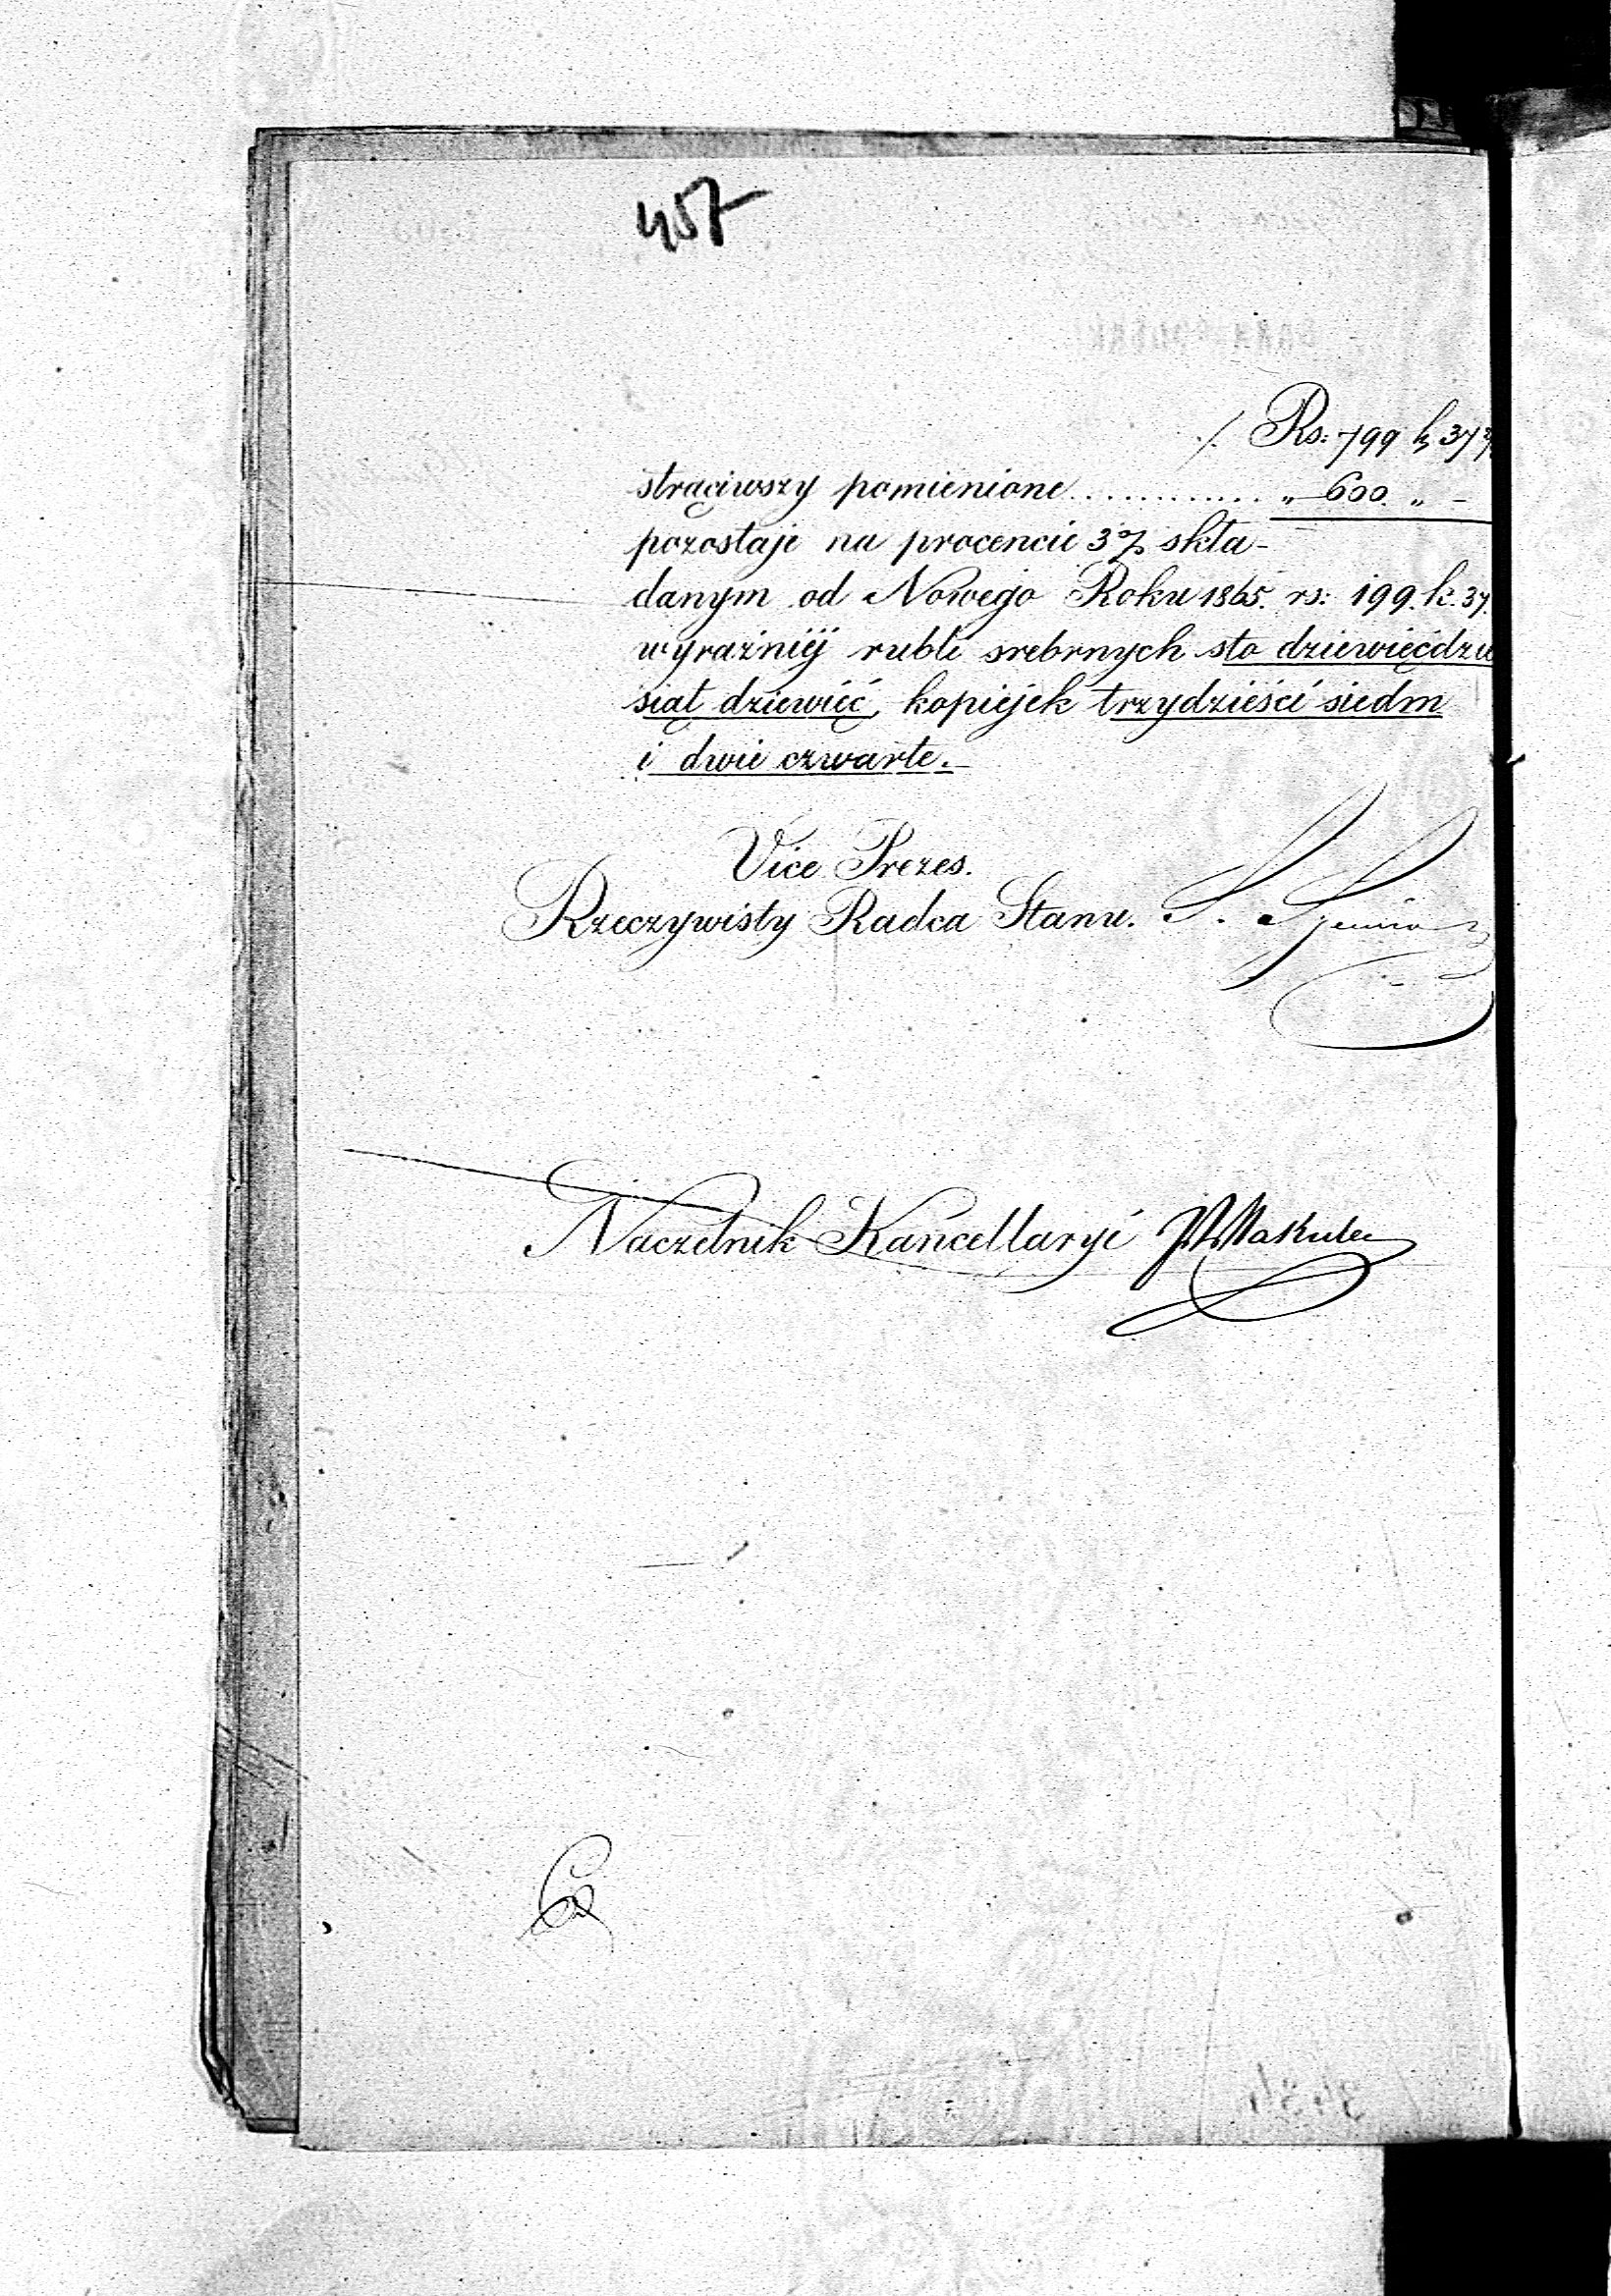 457
./. Rs: 799 k 37 2/
strąciwszy pomienione ............ „ 600. „ -
pozostaje na procencie 3% skła-
danym od Nowego Roku 1865. rs: 199. k. 37.
wyraźniéj rubli srebrnych sto dziewięćdzie
siąt dziewięć, kopiejek trzydzieści siedm
i dwie czwarte.-
Vice Prezes.
Rzeczywisty Radca Stanu. S.
Naczelnik Kancellaryi